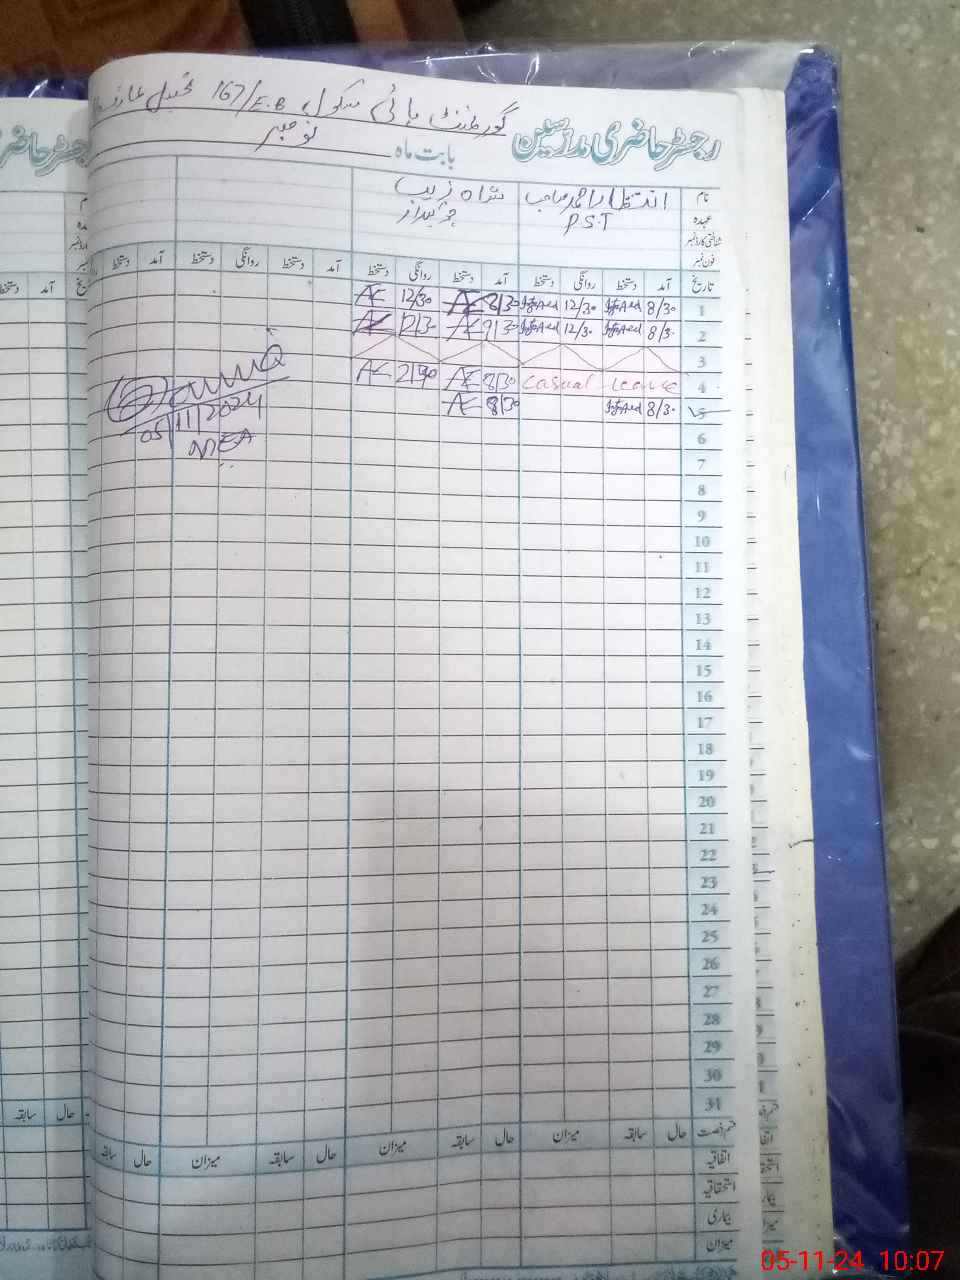 گورنمنٹ ہائی سکول 167/E.B تحصیل
رجسٹر حاضری مدرسین
بابت ماہ نومبر
نام انتظار احمد صاحب شاہ زیب
عہدہ P.S.T چوکیدار
شناختی کارڈ نمبر
فون نمبر
تاریخ آمد دستخط روانگی دستخط آمد دستخط روانگی دستخط آمد دستخط روانگی دستخط آمد دستخط
1 8/30 12/30 8/30 12/30
2 8/30 12/30 12/30
3
4 casual leave 8/30
5 8/30 8/30
6
7
8
9
10
11
12
13
14
15
16
17
18
19
20
21
22
23
24
25
26
27
28
29
30
31
05/11/2024
MEA
قسم رخصت حال سابقہ میزان حال سابقہ میزان حال سابقہ میزان حال سابقہ
اتفاقیہ
استحقاقیہ
بیماری
میزان
05-11-24 10:07